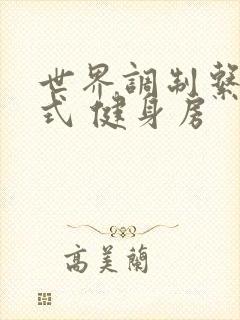 世界調制繫
式 健身房
高美蘭